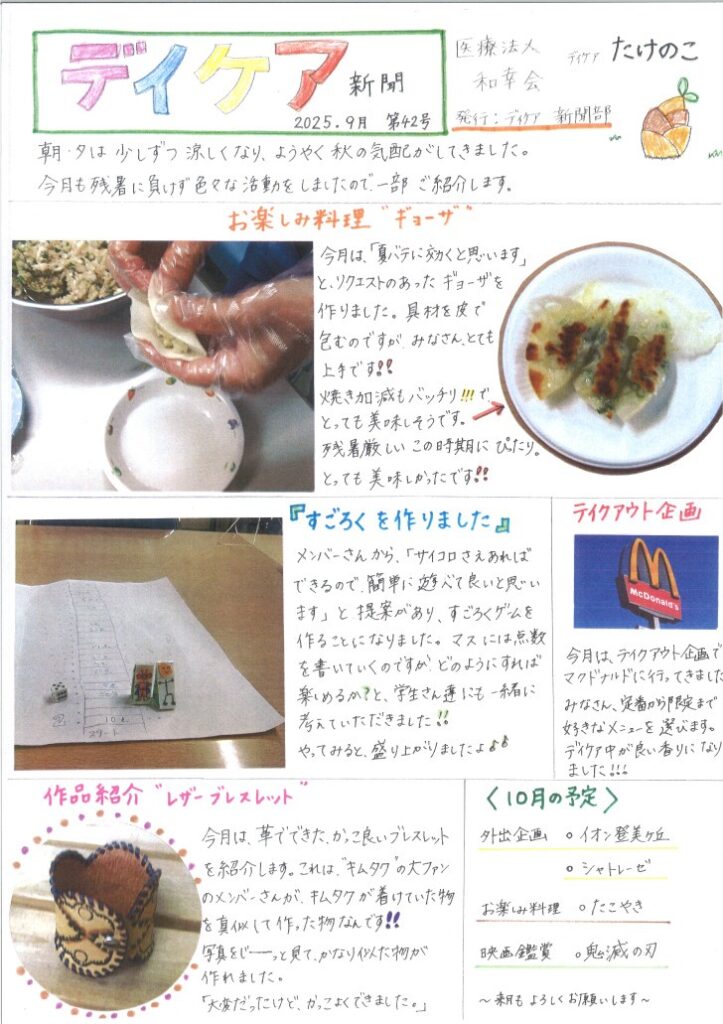 デイケア新聞
2025.9月 第42号
医療法人
和幸会
デイケア たけのこ
発行：デイケア 新聞部
朝・夕は少しずつ涼しくなり、ようやく秋の気配がしてきました。
今月も残暑に負けず色々な活動をしましたので、一部ご紹介します。
お楽しみ料理"ギョーザ"
今月は、「夏バテに効くと思います」
と、リクエストのあったギョーザを
作りました。具材を皮で
包むのですが、みなさん、とても
上手です!!
焼き加減もバッチリ!!!で
とっても美味しそうです。
残暑厳しいこの時期にぴたり。
とっても美味しかったです!!
『すごろくを作りました』
メンバーさんから、「サイコロさえあれば
できるので、簡単に遊べて良いと思い
ます」と提案があり、すごろくゲームを
作ることになりました。マスには点数
を書いていくのですが、どのようにすれば
楽しめるか?と、学生さん達にも一緒に
考えていただきました!!
やってみると、盛り上がりましたよ♪♪
スタート
テイクアウト企画
McDonald's
今月は、テイクアウト企画で
マクドナルドに行ってきました
みなさん、定番から限定まで
好きなメニューを選びます。
デイケア中が良い香りになり
ました!!!
作品紹介"レザーブレスレット"
今月は、革でできた、かっこ良いブレスレット
を紹介します。これは、"キムタク"の大ファン
のメンバーさんが、キムタクが着けていた物
を真似して作った物なんです!!
写真をじーーっと見て、かなり似た物が
作れました。
「大変だったけど、かっこよくできました。」
〈10月の予定〉
外出企画 ○イオン登美ヶ丘
○シャトレーゼ
お楽しみ料理 ○たこやき
映画鑑賞 ○鬼滅の刃
～来月もよろしくお願いします～